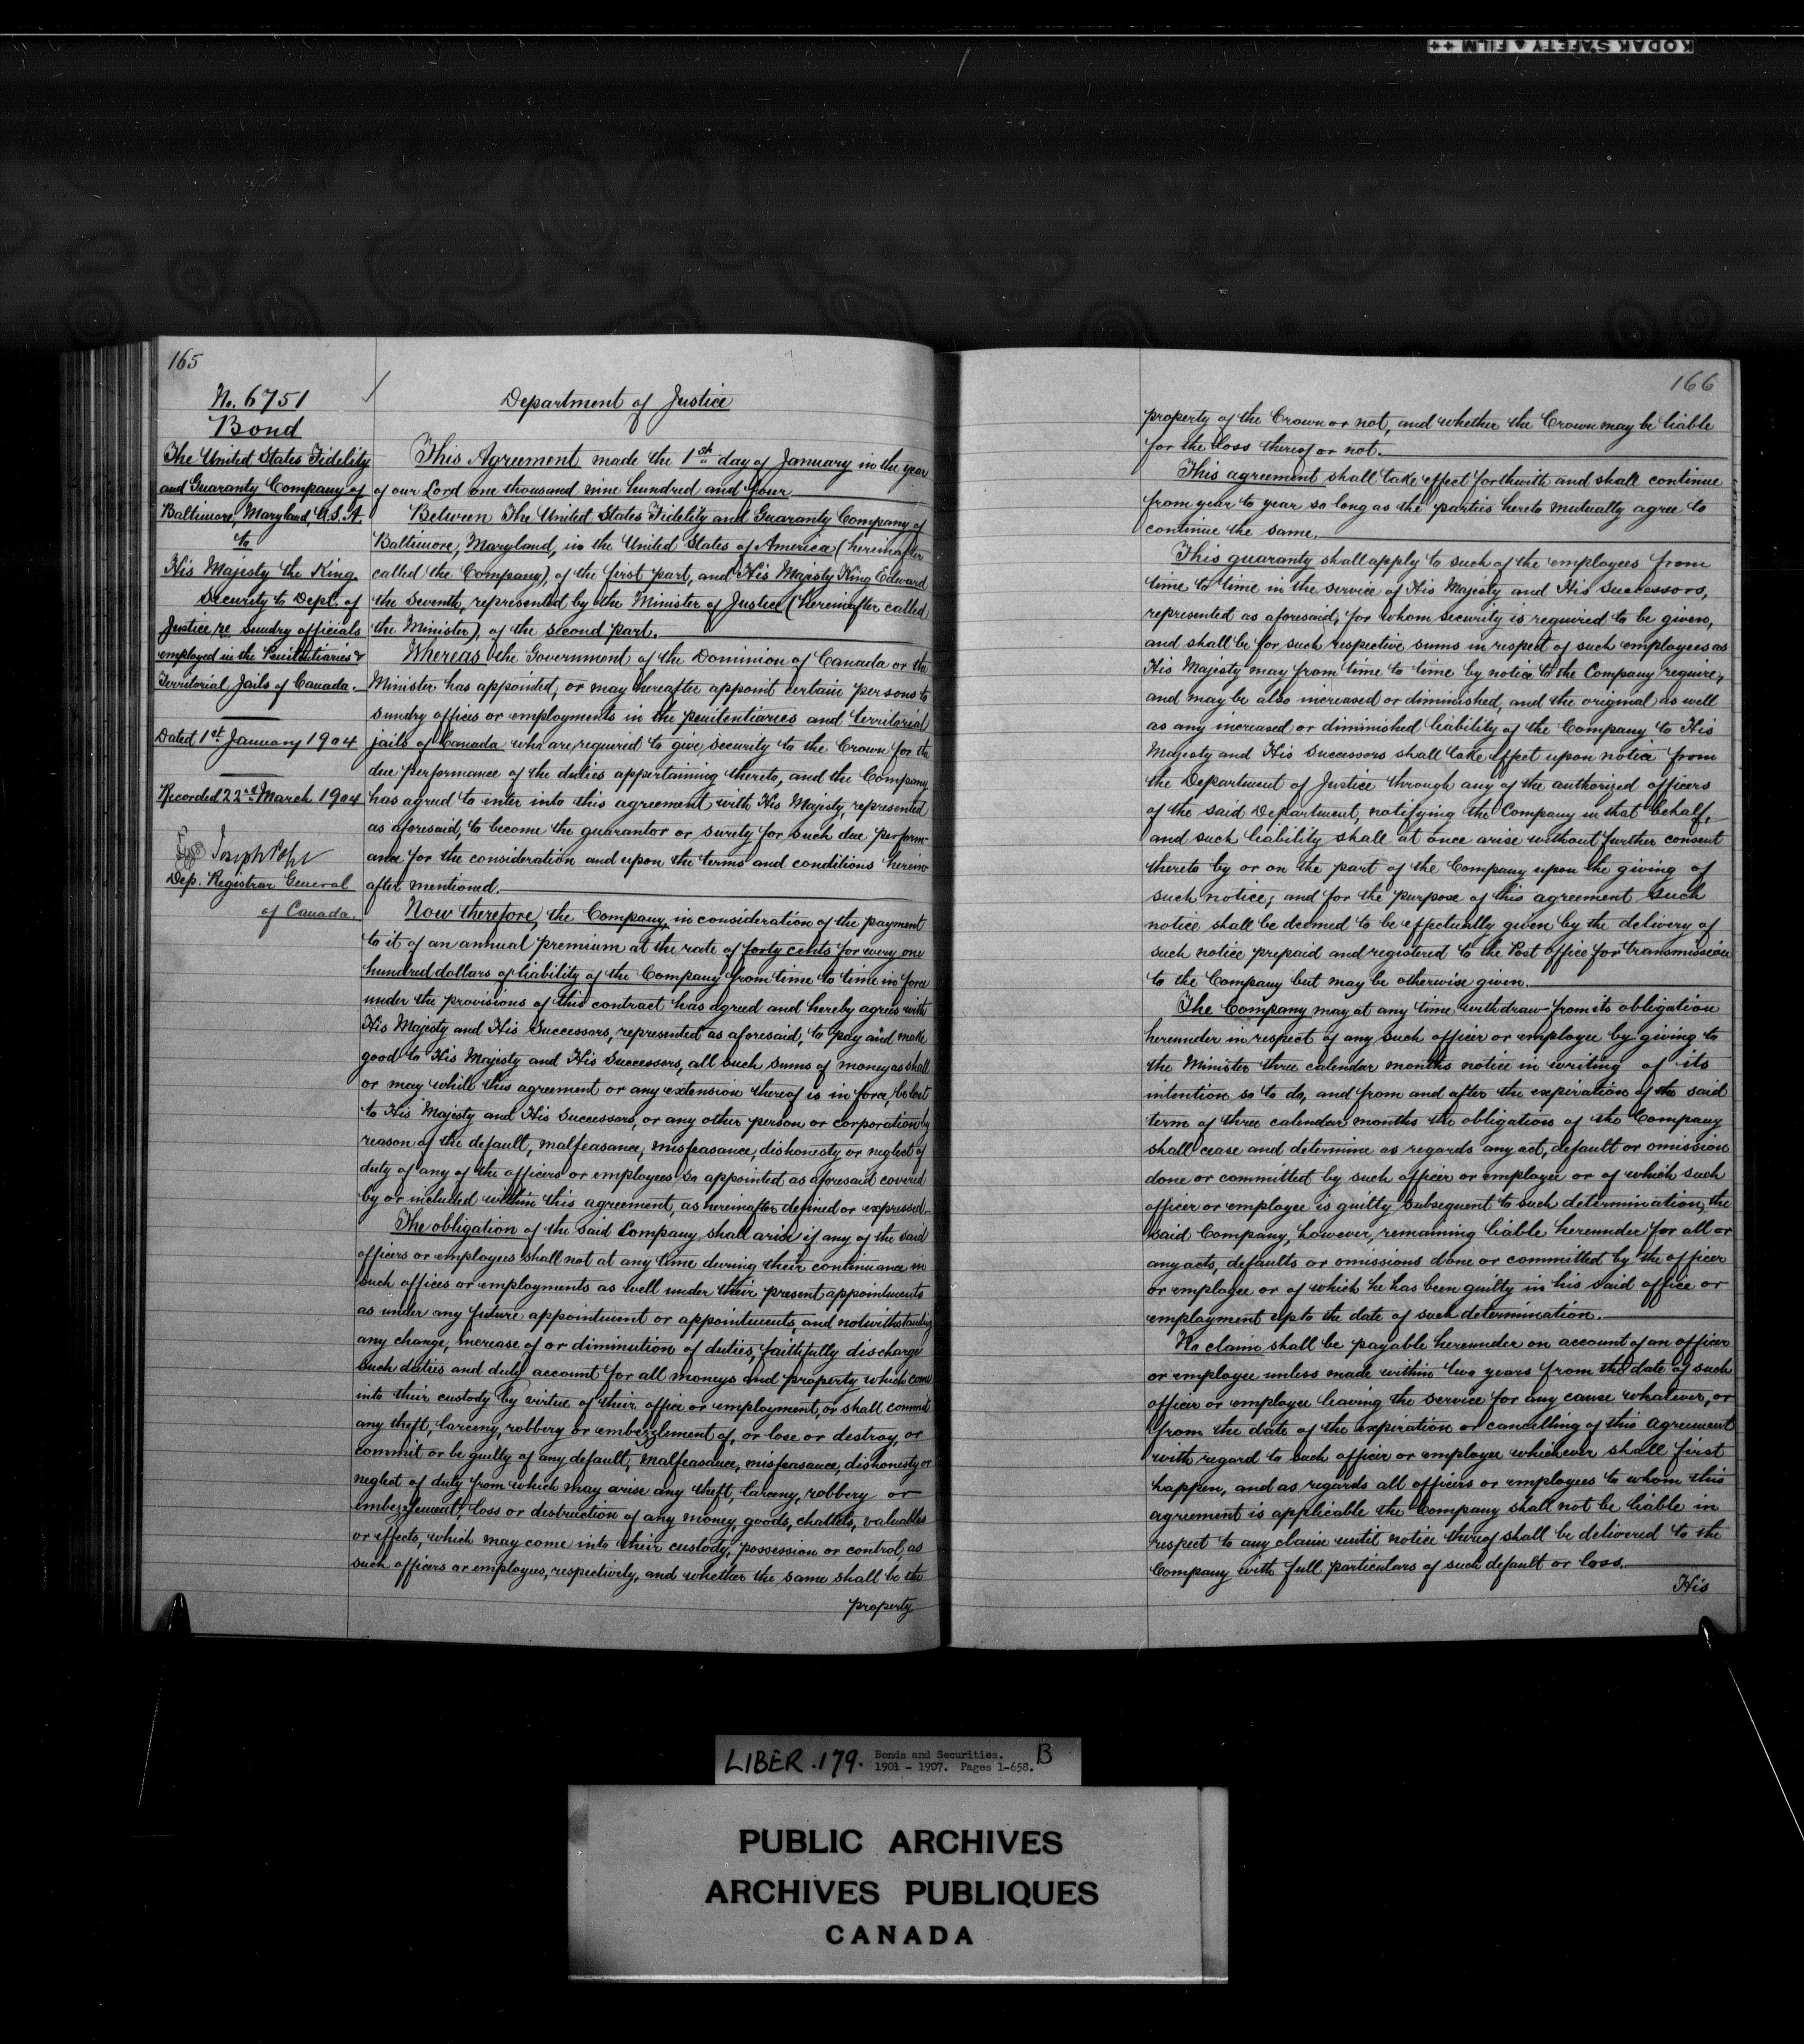 KODAK SAFETY FILM ++
165
No. 6751
Bond
The United States Fidelity
and Guaranty Company of
Baltimore, Maryland U.S.A.
to
His Majesty the King.
Security to Dept. of
Justice re sundry officials
employed in the Penitentiaries &
Territorial Jails of Canada.
Dated 1st January 1904
Recorded 22nd March 1904
Joseph Pope
Dep. Registrar General
of Canada.
Department of Justice
This Agreement made the 1st day of January in the year
of our Lord one thousand nine hundred and four
Between The United States Fidelity and Guaranty Company of
Baltimore, Maryland, in the United States of America (hereinafter
called the Company), of the first part, and His Majesty King Edward
the Seventh, represented by the Minister of Justice (hereinafter called
the Minister), of the second part.
Whereas the Government of the Dominion of Canada or the
Minister has appointed, or may hereafter appoint certain persons to
sundry offices or employments in the penitentiaries and territorial
jails of Canada who are required to give security to the Crown for the
due performance of the duties appertaining thereto, and the Company
has agreed to enter into this agreement with His Majesty, represented
as aforesaid, to become the guarantor or surety for such due perform-
ance for the consideration and upon the terms and conditions herein
after mentioned.
Now therefore, the Company, in consideration of the payment
to it of an annual premium at the rate of forty cents for every one
hundred dollars of liability of the Company from time to time in force
under the provisions of this contract has agreed and hereby agrees with
His Majesty and His Successors, represented as aforesaid, to pay and make
good to His Majesty and His Successors, all such sums of money as shall
or may while this agreement or any extension thereof is in force, be lost
to His Majesty and His Successors, or any other person or corporation by
reason of the default, malfeasance, misfeasance, dishonesty or neglect of
duty of any of the officers or employees so appointed as aforesaid covered
by or included within this agreement, as hereinafter defined or expressed.
The obligation of the said Company shall arise if any of the said
officers or employees shall not at any time during their continuance in
such offices or employments as well under their present appointments
as under any future appointment or appointments, and notwithstanding
any change, increase of or diminution of duties, faithfully discharge
such duties and duly account for all moneys and property which come
into their custody by virtue of their office or employment, or shall commit
any theft, larceny, robbery or embezzlement of, or lose or destroy, or
commit or be guilty of any default, malfeasance, misfeasance, dishonesty or
neglect of duty from which may arise any theft, larceny, robbery or
embezzlement, loss or destruction of any money, goods, chattels, valuables
or effects, which may come into their custody, possession or control, as
such officers or employees, respectively, and whether the same shall be the
property
166
property of the Crown or not, and whether the Crown may be liable
for the loss thereof or not.
This agreement shall take effect forthwith and shall continue
from year to year so long as the parties hereto mutually agree to
continue the same.
This guaranty shall apply to such of the employees from
time to time in the service of His Majesty and His Successors,
represented as aforesaid, for whom security is required to be given,
and shall be for such respective sums in respect of such employees as
His Majesty may from time to time by notice to the Company require,
and may be also increased or diminished, and the original as well
as any increased or diminished liability of the Company to His
Majesty and His Successors shall take effect upon notice from
the Department of Justice through any of the authorized officers
of the said Department, notifying the Company in that behalf,
and such liability shall at once arise without further consent
thereto by or on the part of the Company upon the giving of
such notice; and for the purpose of this agreement such
notice shall be deemed to be effectually given by the delivery of
such notice prepaid and registered to the Post office for transmission
to the Company but may be otherwise given.
The Company may at any time withdraw from its obligation
hereunder in respect of any such officer or employee by giving to
the Minister three calendar months notice in writing of its
intention so to do, and from and after the expiration of the said
term of three calendar months the obligation of the Company
shall cease and determine as regards any act, default or omission
done or committed by such officer or employee or of which such
officer or employee is guilty subsequent to such determination, the
said Company, however, remaining liable hereunder for all or
any acts, defaults or omissions done or committed by the officer
or employee or of which he has been guilty in his said office or
employment up to the date of such determination.
No claim shall be payable hereunder on account of an officer
or employee unless made within two years from the date of such
officer or employee leaving the service for any cause whatever, or
from the date of the expiration or cancelling of this agreement
with regard to such officer or employee whichever shall first
happen, and as regards all officers or employees to whom this
agreement is applicable the Company shall not be liable in
respect to any claim until notice thereof shall be delivered to the
Company with full particulars of such default or loss.
His
LIBER .179. Bonds and Securities. B
1901 - 1907. Pages 1-658.
PUBLIC ARCHIVES
ARCHIVES PUBLIQUES
CANADA